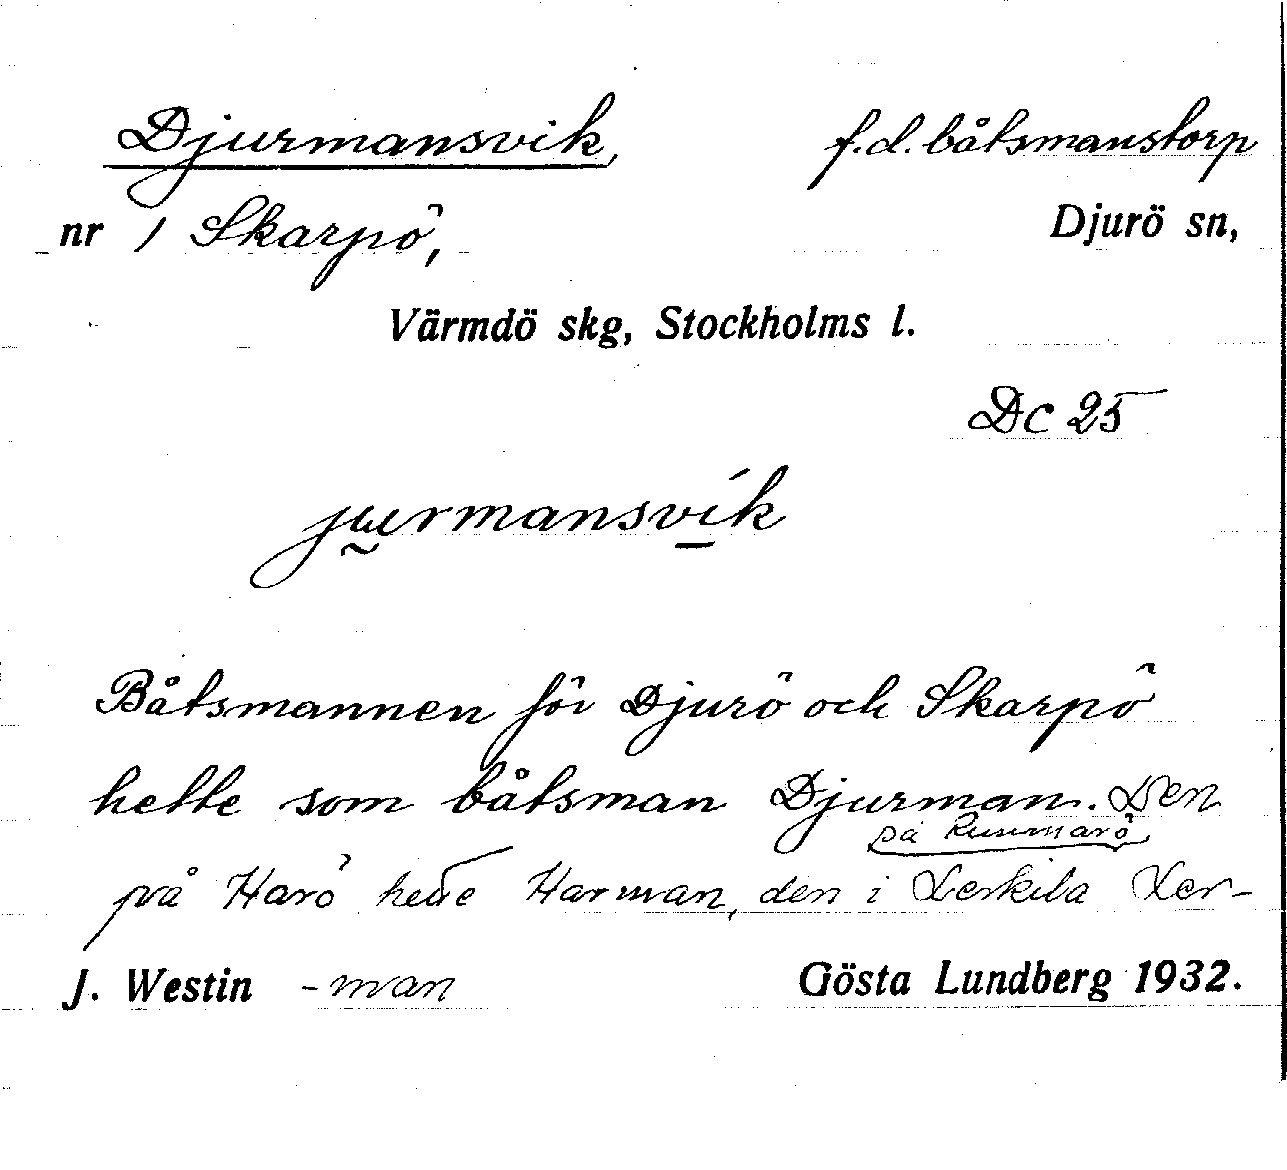 Djurmansvik, f.d. båtsmanstorp
nr 1 Skarpö, Djurö sn,
Värmdö skg, Stockholms l.
Dc 25
jurmansvík
Båtsmannen för Djurö och Skarpö
hette som båtsman Djurman. Den
på Runmarö
på Harö hette Harman, den i Lerkila Ler-
J. Westin -man Gösta Lundberg 1932.